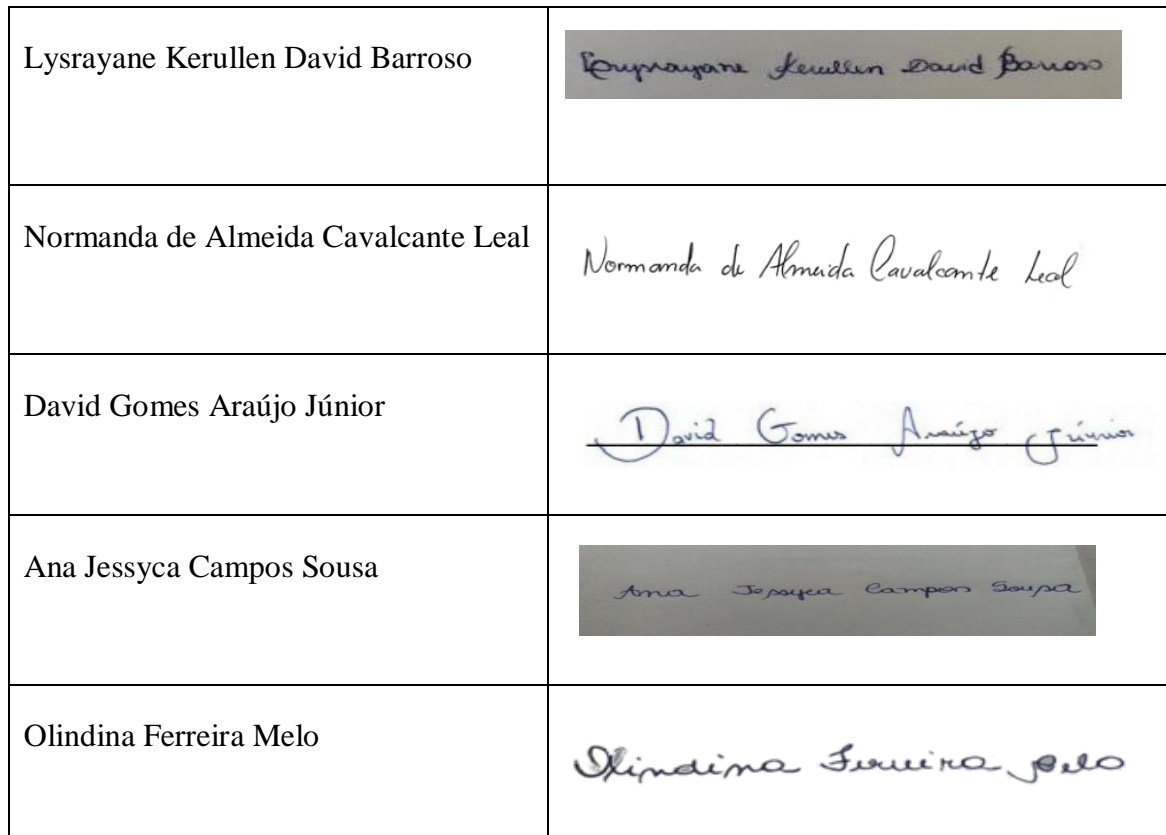 Lysrayane Kerullen David Barroso
Lysrayane Kerullen David Barroso
Normanda de Almeida Cavalcante Leal
Normanda de Almeida Cavalcante Leal
David Gomes Araújo Júnior
David Gomes Araújo Júnior
Ana Jessyca Campos Sousa
Ana Jessyca Campos Sousa
Olindina Ferreira Melo
Olindina Ferreira Melo